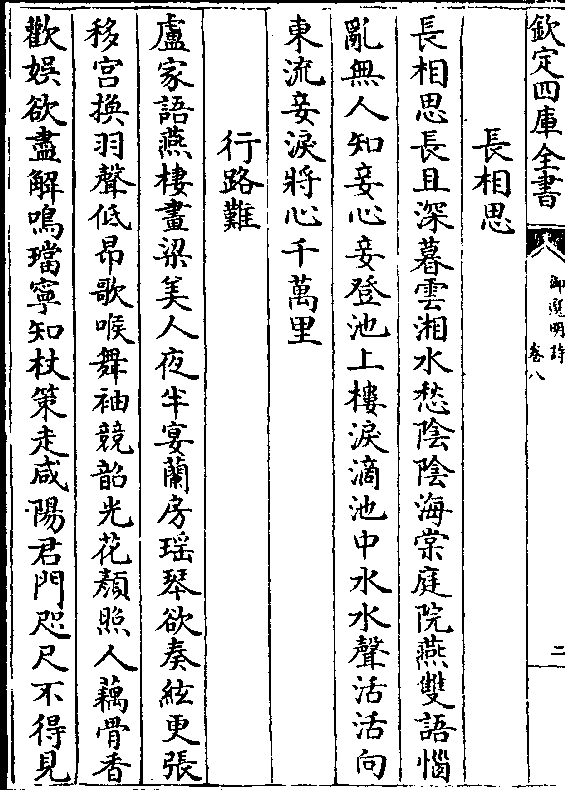 欽定四庫全書
御選明詩
卷八
二
長相思
長相思長且深暮雲湘水愁陰陰海棠庭院燕雙語惱
亂無人知妾心妾登池上樓淚滴池中水水聲活活向
東流妾淚將心千萬里
行路難
盧家語燕棲畫梁美人夜半宴蘭房瑶琴欲奏絃更張
移宮換羽聲低昂歌喉舞袖競韶光花顏照人藕骨香
歡娱欲盡解鳴璫寧知杖策走咸陽君門咫尺不得見